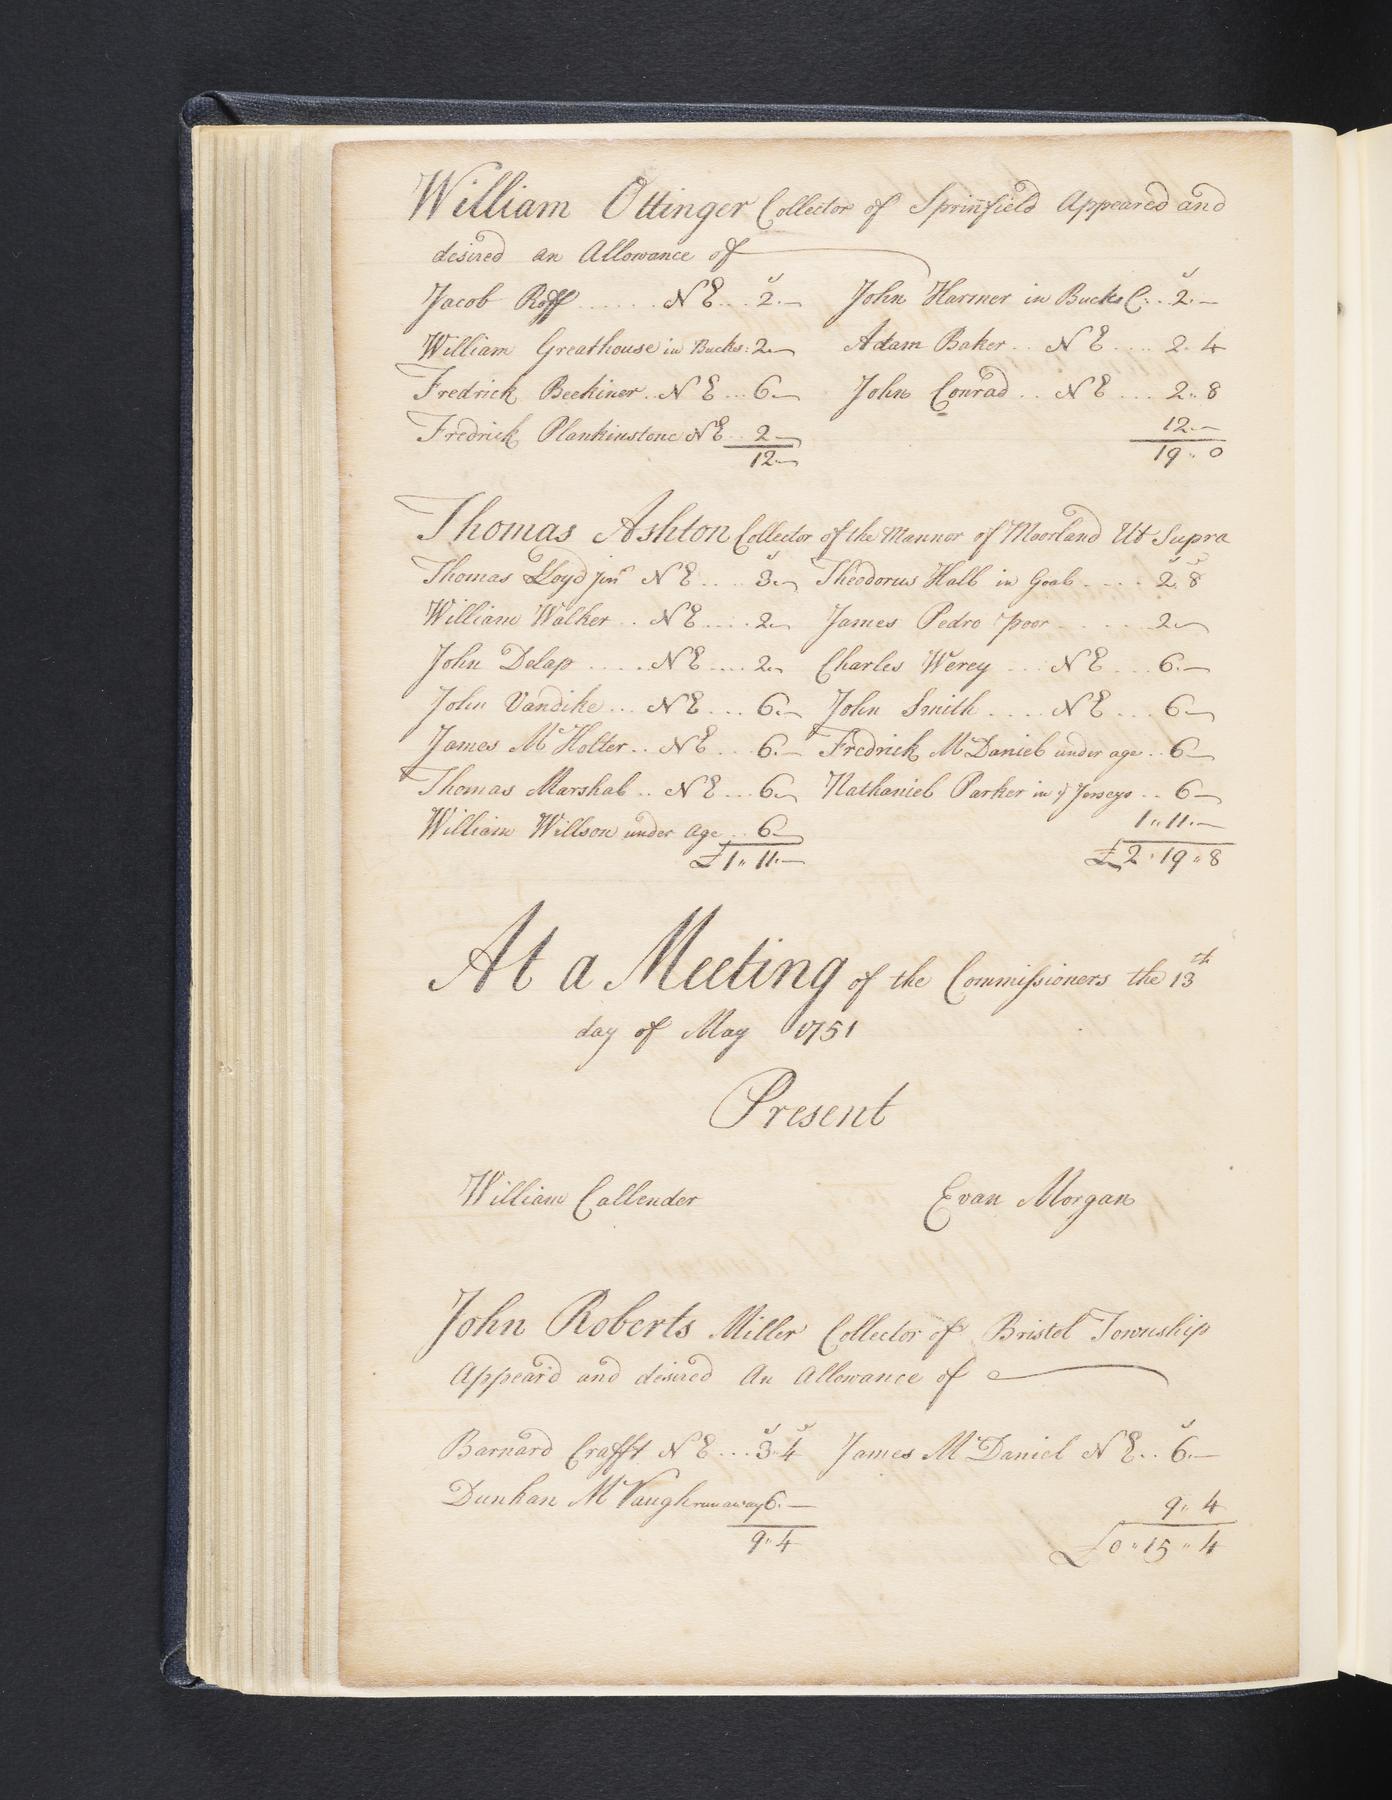 William Ottinger Collector of Sprinfield Appeared and
desired an Allowance of
Jacob Roff ...... N E ... 2.— John Harmer in Bucks C. .. 2.—
William Greathouse in Bucks: 2.— Adam Baker .. N E .... 2. 4
Fredrick Beekiner .. N E ... 6.— John Conrad .. N E .... 2.. 8
Fredrick Plankinstone N E .. 2.— 12.—
12.— 19.. 0
Thomas Ashton Collector of the Mannor of Moorland Ut Supra
s s s
Thomas Lloyd junr N E .... 3.— Theodorus Hall in Goal ..... 2. 8
William Walker .. N E .... 2.— James Pedro poor ...... 2.—
John Delap ..... N E .... 2.— Charles Werey ... N E ... 6.—
John Vandike ... N E ... 6.— John Smith .... N E ... 6.—
James Mc Holter .. N E ... 6.— Fredrick McDaniel under age .. 6.—
Thomas Marshal .. N E ... 6.— Nathaniel Parker in ye Jerseys .. 6.—
William Willson under Age .. 6.— 1.. 11.—
£1.. 11.— £2.. 19.. 8
At a Meeting of the Commissioners the 13th
day of May 1751
Present
William Callender Evan Morgan
John Roberts Miller Collector of Bristol Township
Appear'd and desired An Allowance of
s s s
Barnard Crafft N E ... 3.. 4 James McDaniel N E .. 6.—
Dunkan McVaugh runaway 6.— 9.. 4
9.. 4 £0.. 15.. 4